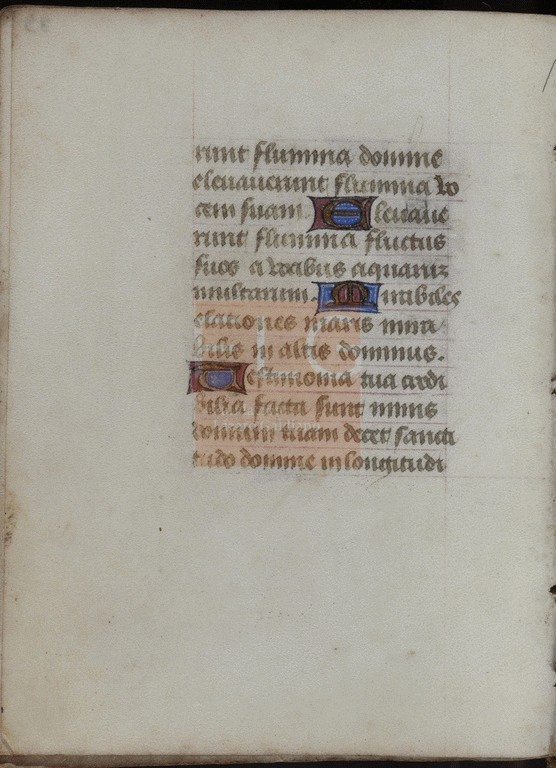 runt flumina domine
eleuauerunt flumina vo
cem suam. Eleuaue
runt flumina fluctus
suos a vocibus aquarum
multarum. Mirabiles
elationes maris mira
bilis in altis dominus.
Testimonia tua credi
bilia facta sunt nimis
domum tuam decet sancti
tudo domine in longitudi